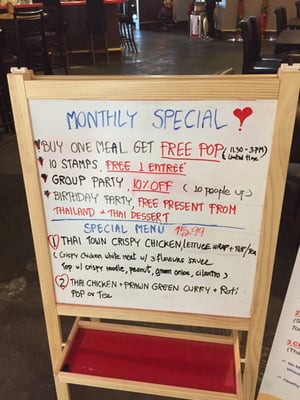 MONTHLY SPECIAL
BUY ONE MEAL GET FREE POP (11.30 - 3PM)
(Limited time
10 STAMPS, FREE 1 ENTREÉ
GROUP PARTY, 10% OFF ( 10 people up )
BIRTHDAY PARTY, FREE PRESENT FROM
THAILAND + THAI DESSERT
SPECIAL MENU 15.99
1 THAI TOWN CRISPY CHICKEN, LETTUCE WRAP + POP/TEA
( Crispy chicken white meat w/ 3 flavours sauce
Top w/ crispy noodle, peanut, green onion, cilantro )
2 THAI CHICKEN + PRAWN GREEN CURRY + Roti
POP or Tea